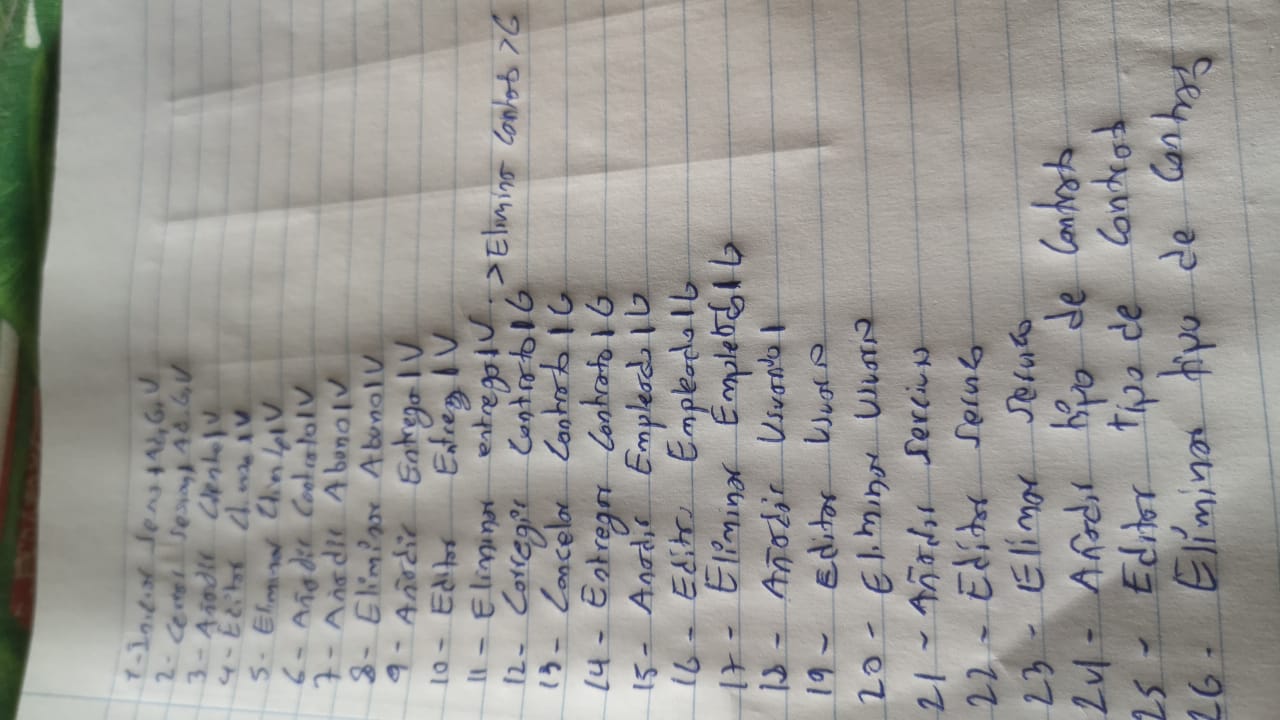 1-Iniciar Sesi | Ad, G, V
2- Cerrar Sesion | Ad. G, V
3- Añadir Cliente | V
4- Editar Cliente | V
5- Eliminar Cliente | V
6- Añadir Contrato | V
7- Añadir Abono | V
8- Eliminar Abono | V
9- Añadir Entrega | V
10- Editar Entreg | V
11- Eliminar entrega | V. > Eliminar Contrato > G
12- Corregir Contrato | G
13- Cancelar Contrato | G
14- Entregar Contrato | G
15- Añadir Empleado | G
16- Editar Empleado | G
17- Eliminar Empleado | G
18- Añadir Usuario |
19- Editar Usuario
20- Eliminar Usuario
21- Añadir Servicio
22- Editar Servicio
23- Elimar Servicio
24- Añadir tipo de Contrato
25- Editar tipo de Contrato
26- Eliminar tipo de Contrato